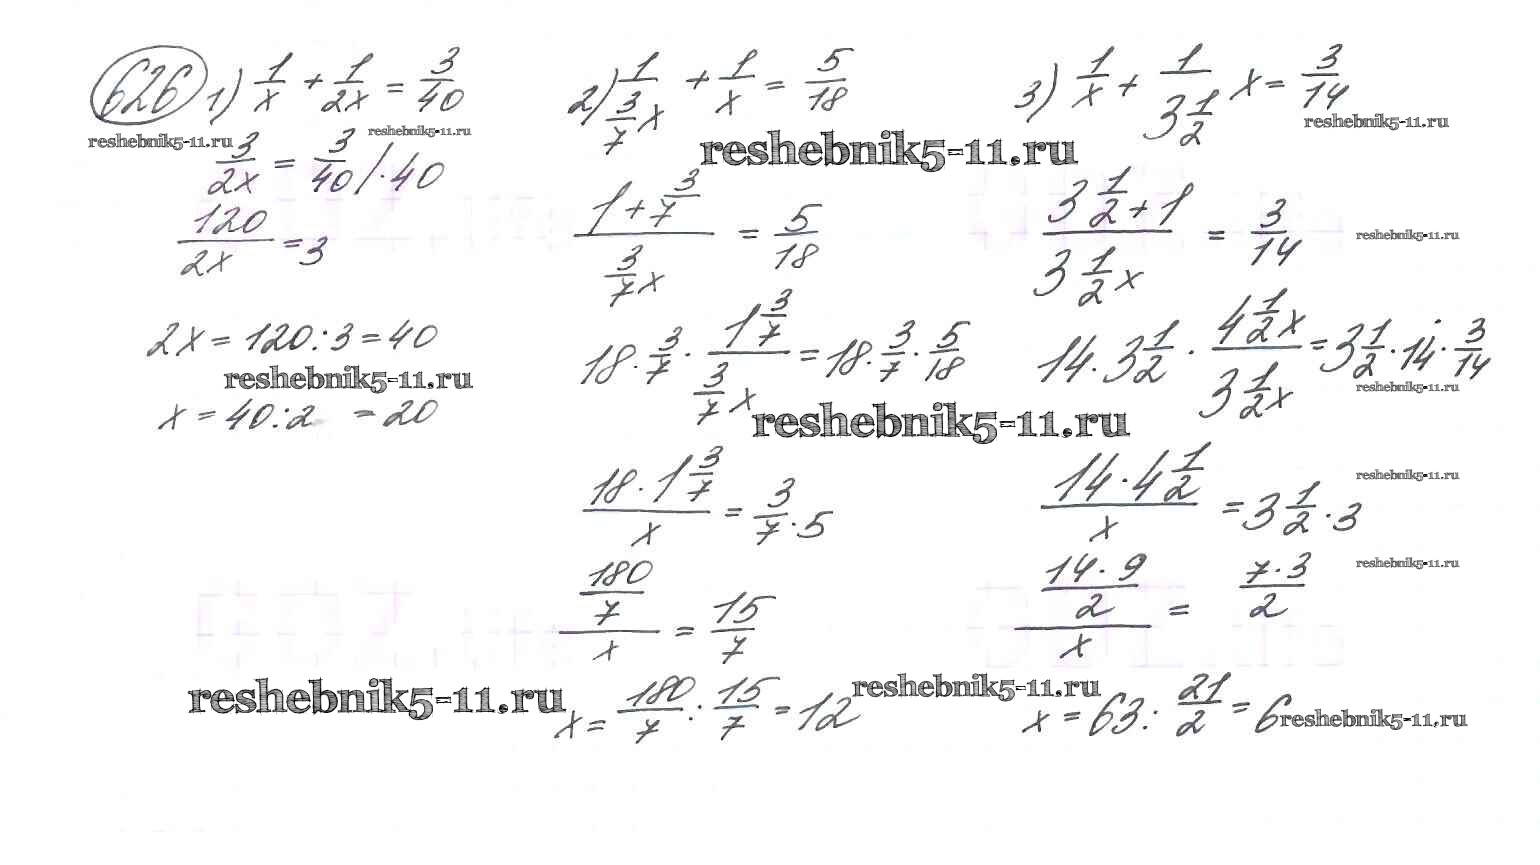 626 1) 1/x + 1/2x = 3/40
reshebnik5-11.ru reshebnik5-11.ru
3/2x = 3/40 /·40
120/2x = 3
2x = 120:3 = 40
reshebnik5-11.ru
x = 40:2 = 20
2) 1/(3/7 x) + 1/x = 5/18
reshebnik5-11.ru
(1 + 3/7)/(3/7 x) = 5/18
18 · 3/7 · (1 3/7)/(3/7 x) = 18 · 3/7 · 5/18
reshebnik5-11.ru
(18 · 1 3/7)/x = 3/7 · 5
(180/7)/x = 15/7
reshebnik5-11.ru
x = 180/7 : 15/7 = 12
3) 1/x + 1/(3 1/2) x = 3/14
reshebnik5-11.ru
(3 1/2 + 1)/(3 1/2 x) = 3/14
reshebnik5-11.ru
14 · 3 1/2 · (4 1/2 x)/(3 1/2 x) = 3 1/2 · 14 · 3/14
reshebnik5-11.ru
reshebnik5-11.ru
(14 · 4 1/2)/x = 3 1/2 · 3
reshebnik5-11.ru
((14 · 9)/2)/x = (7 · 3)/2
reshebnik5-11.ru
x = 63 : 21/2 = 6
reshebnik5-11.ru